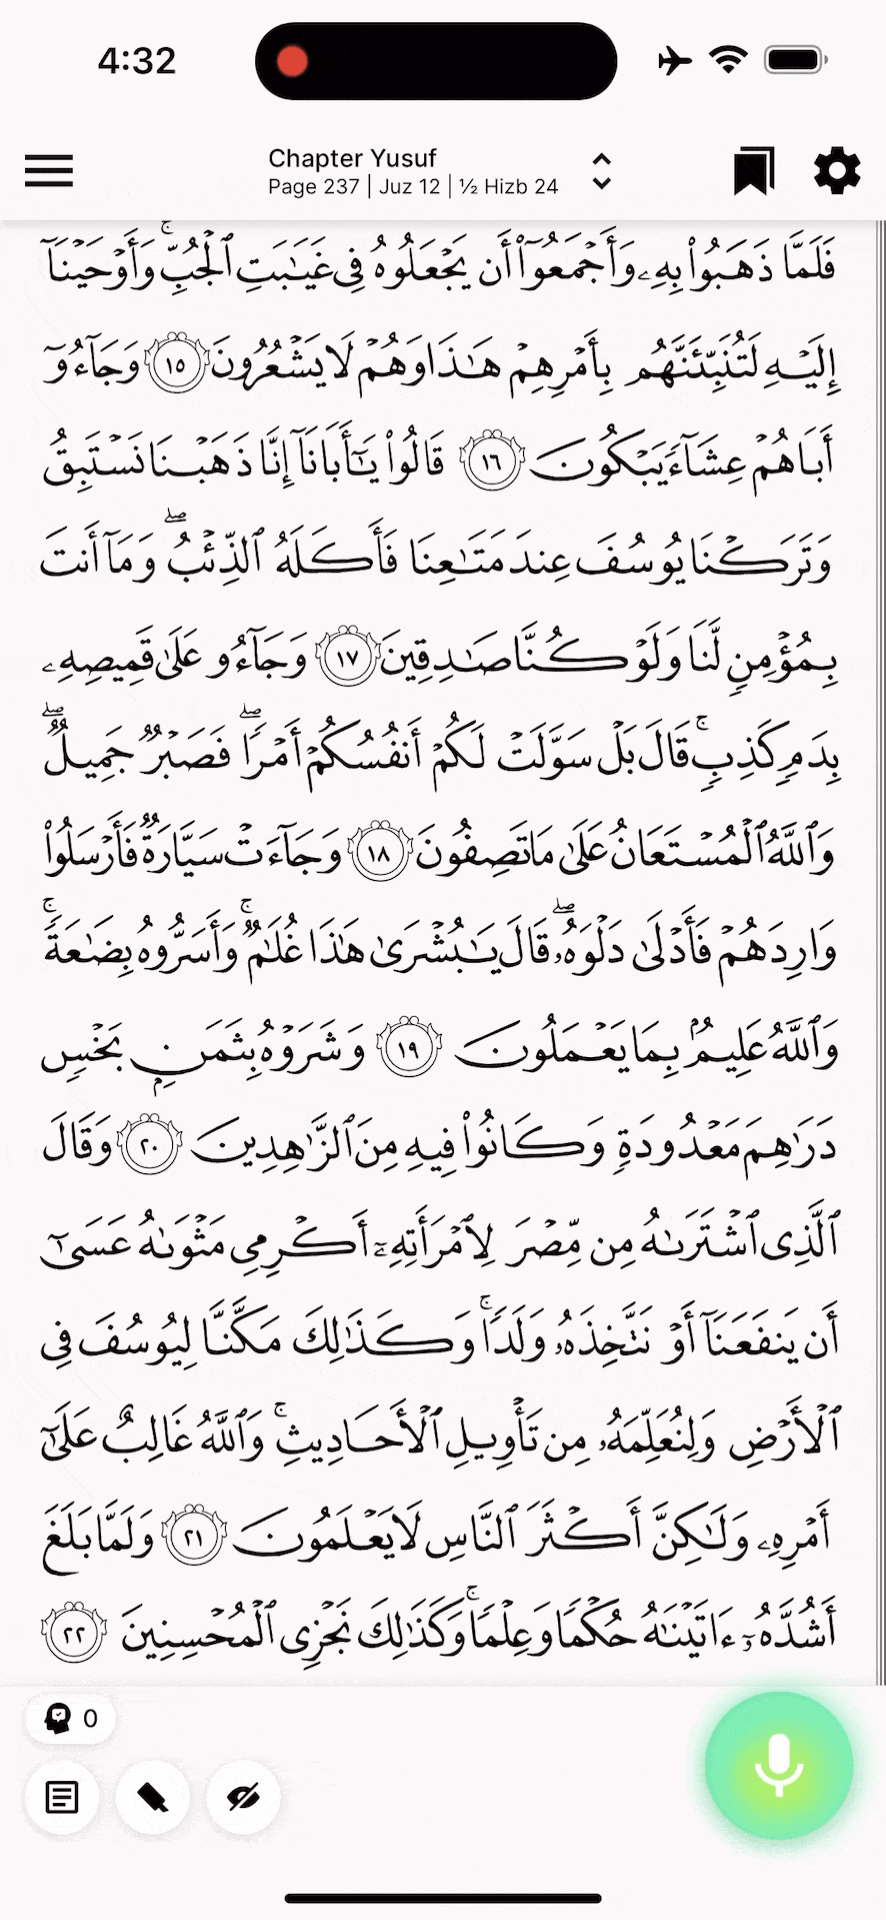 4:32
Chapter Yusuf
Page 237 | Juz 12 | ½ Hizb 24
فَلَمَّا ذَهَبُوا۟ بِهِۦ وَأَجْمَعُوٓا۟ أَن يَجْعَلُوهُ فِى غَيَـٰبَتِ ٱلْجُبِّ ۚ وَأَوْحَيْنَآ
إِلَيْهِ لَتُنَبِّئَنَّهُم بِأَمْرِهِمْ هَـٰذَا وَهُمْ لَا يَشْعُرُونَ ١٥ وَجَآءُوٓ
أَبَاهُمْ عِشَآءً يَبْكُونَ ١٦ قَالُوا۟ يَـٰٓأَبَانَآ إِنَّا ذَهَبْنَا نَسْتَبِقُ
وَتَرَكْنَا يُوسُفَ عِندَ مَتَـٰعِنَا فَأَكَلَهُ ٱلذِّئْبُ ۖ وَمَآ أَنتَ
بِمُؤْمِنٍ لَّنَا وَلَوْ كُنَّا صَـٰدِقِينَ ١٧ وَجَآءُو عَلَىٰ قَمِيصِهِۦ
بِدَمٍ كَذِبٍ ۚ قَالَ بَلْ سَوَّلَتْ لَكُمْ أَنفُسُكُمْ أَمْرًا ۖ فَصَبْرٌ جَمِيلٌ ۖ
وَٱللَّهُ ٱلْمُسْتَعَانُ عَلَىٰ مَا تَصِفُونَ ١٨ وَجَآءَتْ سَيَّارَةٌ فَأَرْسَلُوا۟
وَارِدَهُمْ فَأَدْلَىٰ دَلْوَهُۥ ۖ قَالَ يَـٰبُشْرَىٰ هَـٰذَا غُلَـٰمٌ ۚ وَأَسَرُّوهُ بِضَـٰعَةً ۚ
وَٱللَّهُ عَلِيمٌۢ بِمَا يَعْمَلُونَ ١٩ وَشَرَوْهُ بِثَمَنٍۭ بَخْسٍ
دَرَٰهِمَ مَعْدُودَةٍ وَكَانُوا۟ فِيهِ مِنَ ٱلزَّٰهِدِينَ ٢٠ وَقَالَ
ٱلَّذِى ٱشْتَرَىٰهُ مِن مِّصْرَ لِٱمْرَأَتِهِۦٓ أَكْرِمِى مَثْوَىٰهُ عَسَىٰٓ
أَن يَنفَعَنَآ أَوْ نَتَّخِذَهُۥ وَلَدًا ۚ وَكَذَٰلِكَ مَكَّنَّا لِيُوسُفَ فِى
ٱلْأَرْضِ وَلِنُعَلِّمَهُۥ مِن تَأْوِيلِ ٱلْأَحَادِيثِ ۚ وَٱللَّهُ غَالِبٌ عَلَىٰٓ
أَمْرِهِۦ وَلَـٰكِنَّ أَكْثَرَ ٱلنَّاسِ لَا يَعْلَمُونَ ٢١ وَلَمَّا بَلَغَ
أَشُدَّهُۥٓ ءَاتَيْنَـٰهُ حُكْمًا وَعِلْمًا ۚ وَكَذَٰلِكَ نَجْزِى ٱلْمُحْسِنِينَ ٢٢
0